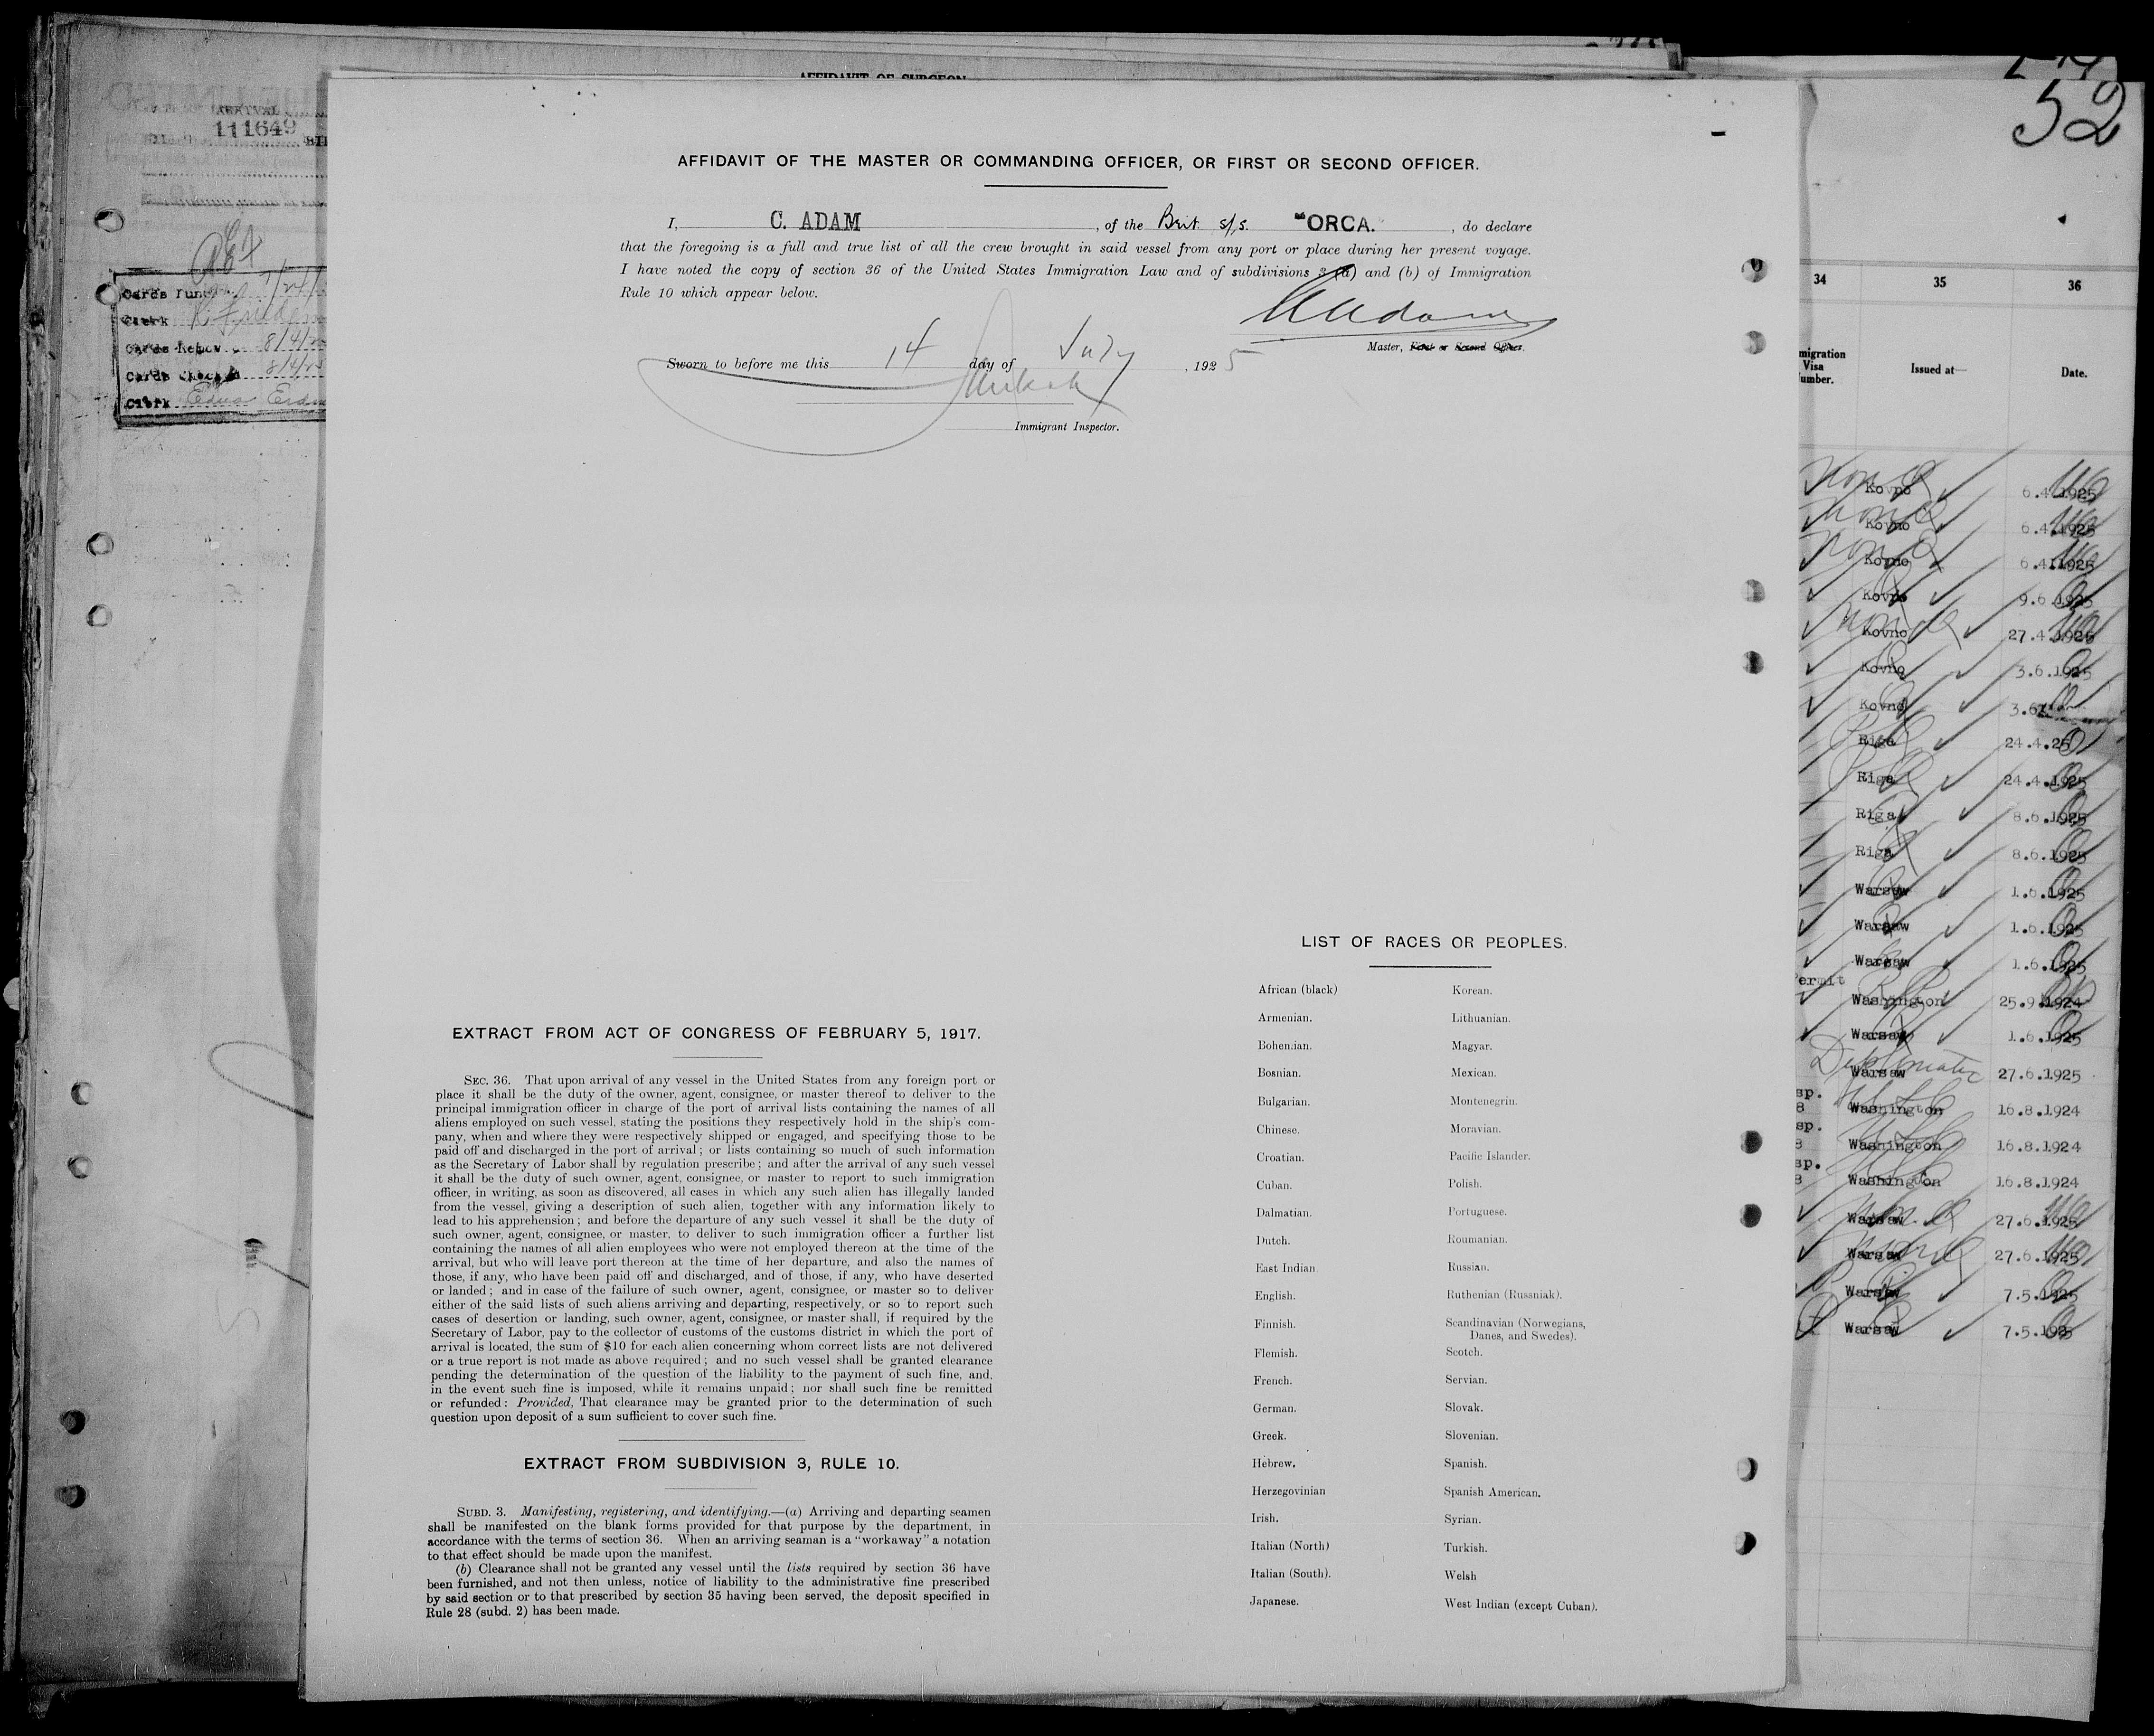 AFFIDAVIT OF SURGEON
ARRIVAL
111649
Cards
Clerk
Cards
Cards
Clerk Edna
AFFIDAVIT OF THE MASTER OR COMMANDING OFFICER, OR FIRST OR SECOND OFFICER.
I, C. ADAM, of the Brit. s/s. "ORCA., do declare
that the foregoing is a full and true list of all the crew brought in said vessel from any port or place during her present voyage.
I have noted the copy of section 36 of the United States Immigration Law and of subdivisions 3 (a) and (b) of Immigration
Rule 10 which appear below.
CAdam
Master, First or Second Officer.
Sworn to before me this 14 day of July, 1925
Immigrant Inspector.
EXTRACT FROM ACT OF CONGRESS OF FEBRUARY 5, 1917.
SEC. 36. That upon arrival of any vessel in the United States from any foreign port or
place it shall be the duty of the owner, agent, consignee, or master thereof to deliver to the
principal immigration officer in charge of the port of arrival lists containing the names of all
aliens employed on such vessel, stating the positions they respectively hold in the ship's com-
pany, when and where they were respectively shipped or engaged, and specifying those to be
paid off and discharged in the port of arrival; or lists containing so much of such information
as the Secretary of Labor shall by regulation prescribe; and after the arrival of any such vessel
it shall be the duty of such owner, agent, consignee, or master to report to such immigration
officer, in writing, as soon as discovered, all cases in which any such alien has illegally landed
from the vessel, giving a description of such alien, together with any information likely to
lead to his apprehension; and before the departure of any such vessel it shall be the duty of
such owner, agent, consignee, or master, to deliver to such immigration officer a further list
containing the names of all alien employees who were not employed thereon at the time of the
arrival, but who will leave port thereon at the time of her departure, and also the names of
those, if any, who have been paid off and discharged, and of those, if any, who have deserted
or landed; and in case of the failure of such owner, agent, consignee, or master so to deliver
either of the said lists of such aliens arriving and departing, respectively, or so to report such
cases of desertion or landing, such owner, agent, consignee, or master shall, if required by the
Secretary of Labor, pay to the collector of customs of the customs district in which the port of
arrival is located, the sum of $10 for each alien concerning whom correct lists are not delivered
or a true report is not made as above required; and no such vessel shall be granted clearance
pending the determination of the question of the liability to the payment of such fine, and,
in the event such fine is imposed, while it remains unpaid; nor shall such fine be remitted
or refunded: Provided, That clearance may be granted prior to the determination of such
question upon deposit of a sum sufficient to cover such fine.
EXTRACT FROM SUBDIVISION 3, RULE 10.
SUBD. 3. Manifesting, registering, and identifying.—(a) Arriving and departing seamen
shall be manifested on the blank forms provided for that purpose by the department, in
accordance with the terms of section 36. When an arriving seaman is a "workaway" a notation
to that effect should be made upon the manifest.
(b) Clearance shall not be granted any vessel until the lists required by section 36 have
been furnished, and not then unless, notice of liability to the administrative fine prescribed
by said section or to that prescribed by section 35 having been served, the deposit specified in
Rule 28 (subd. 2) has been made.
LIST OF RACES OR PEOPLES.
African (black) Korean.
Armenian. Lithuanian.
Bohemian. Magyar.
Bosnian. Mexican.
Bulgarian. Montenegrin.
Chinese. Moravian.
Croatian. Pacific Islander.
Cuban. Polish.
Dalmatian. Portuguese.
Dutch. Roumanian.
East Indian Russian.
English. Ruthenian (Russniak).
Finnish. Scandinavian (Norwegians,
Danes, and Swedes).
Flemish. Scotch.
French. Servian.
German. Slovak.
Greek. Slovenian.
Hebrew. Spanish.
Herzegovinian Spanish American.
Irish. Syrian.
Italian (North) Turkish.
Italian (South). Welsh
Japanese. West Indian (except Cuban).
52
34 35 36
migration
Visa
umber. Issued at— Date.
Kovno 6.4.1925
Kovno 6.4.1925
Kovno 6.4.1925
Kovno 9.6.1925
Kovno 27.4.1925
Kovno 3.6.1925
Kovno 3.6
Riga 24.4.25
Riga 24.4.1925
Riga 8.6.1925
Riga 8.6.1925
Warsaw 1.6.1925
Warsaw 1.6.1925
Warsaw 1.6.1925
ermit
Washington 25.9.1924
Warsaw 1.6.1925
Diplomatic
Warsaw 27.6.1925
sp.
8 Washington 16.8.1924
sp.
8 Washington 16.8.1924
sp.
8 Washington 16.8.1924
Warsaw 27.6.1925
Warsaw 27.6.1925
Warsaw 7.5.1925
Warsaw 7.5.192